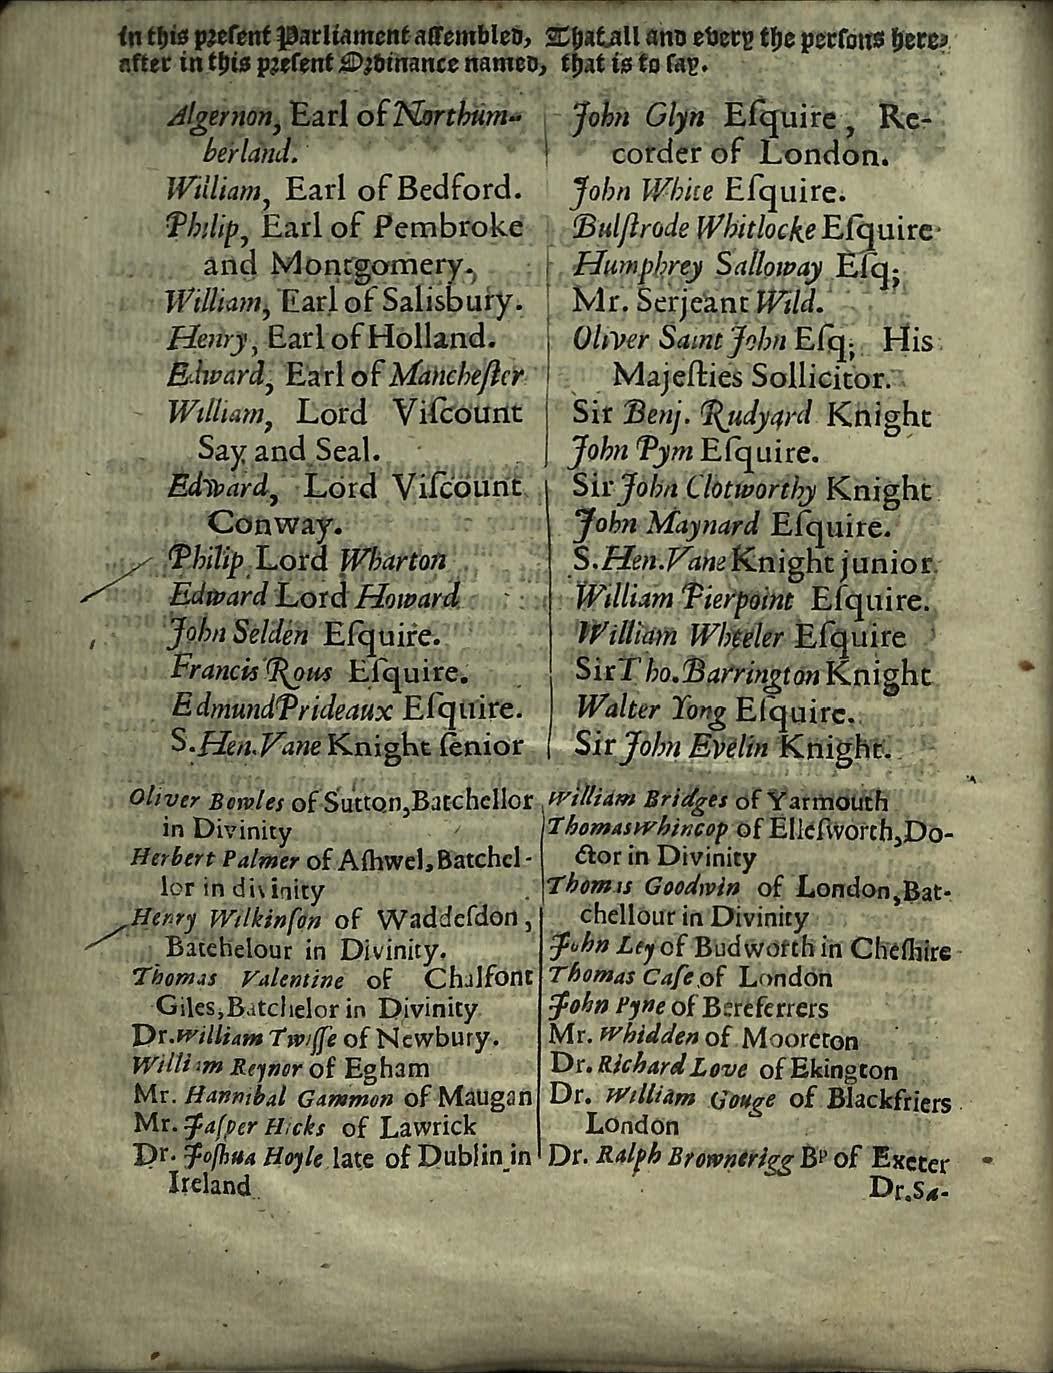 in this preſent Parliament aſſembled, That all and every the perſons here-
after in this preſent Ordinance named, that is to ſay.
Algernon, Earl of Northum-
berland.
William, Earl of Bedford.
Philip, Earl of Pembroke
and Montgomery.
William, Earl of Salisbury.
Henry, Earl of Holland.
Edward, Earl of Mancheſter
William, Lord Viſcount
Say and Seal.
Edward, Lord Viſcount
Conway.
Philip Lord Wharton
Edward Lord Howard
John Selden Eſquire.
Francis Rous Eſquire.
Edmund Prideaux Eſquire.
S. Hen. Vane Knight ſenior
John Glyn Eſquire, Re-
corder of London.
John White Eſquire.
Bulſtrode Whitlocke Eſquire
Humphrey Salloway Eſq;
Mr. Serjeant Wild.
Oliver Saint John Eſq; His
Majeſties Sollicitor.
Sir Benj. Rudyard Knight
John Pym Eſquire.
Sir John Clotworthy Knight
John Maynard Eſquire.
S. Hen. Vane Knight junior
William Pierpoint Eſquire.
William Wheeler Eſquire
Sir Tho. Barrington Knight
Walter Yong Eſquire.
Sir John Evelin Knight.
Oliver Bowles of Sutton, Batchellor
in Divinity
Herbert Palmer of Aſhwel, Batchel-
lor in divinity
Henry Wilkinſon of Waddeſdon,
Batchelour in Divinity.
Thomas Valentine of Chalfont
Giles, Batchelor in Divinity
Dr. William Twiſſe of Newbury.
William Reynor of Egham
Mr. Hannibal Gammon of Maugan
Mr. Jaſper Hicks of Lawrick
Dr. Joſhua Hoyle late of Dublin in
Ireland
William Bridges of Yarmouth
Thomas Whincop of Elleſworth, Do-
ctor in Divinity
Thomas Goodwin of London, Bat-
chellour in Divinity
John Ley of Budworth in Cheſhire
Thomas Caſe of London
John Pyne of Bereferrers
Mr. Whidden of Mooreton
Dr. Richard Love of Ekington
Dr. William Gouge of Blackfriers
London
Dr. Ralph Brownerigg Bp of Exeter
Dr. Sa-